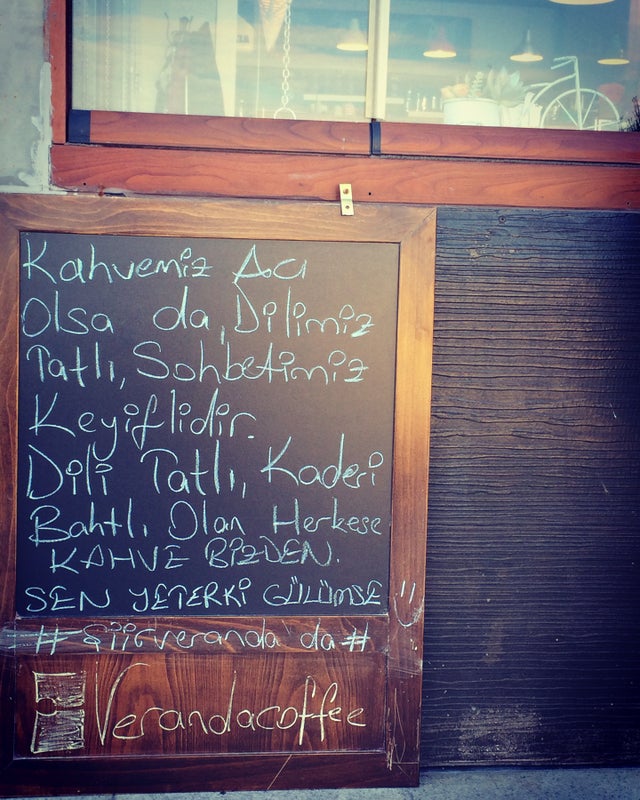 Kahvemiz Acı
Olsa da, Dilimiz
Tatlı, Sohbetimiz
Keyiflidir.
Dili Tatlı, Kaderi
Bahtlı Olan Herkese
KAHVE BİZDEN.
SEN YETERKİ GÜLÜMSE :)
#Şiirveranda'da#
Verandacoffee